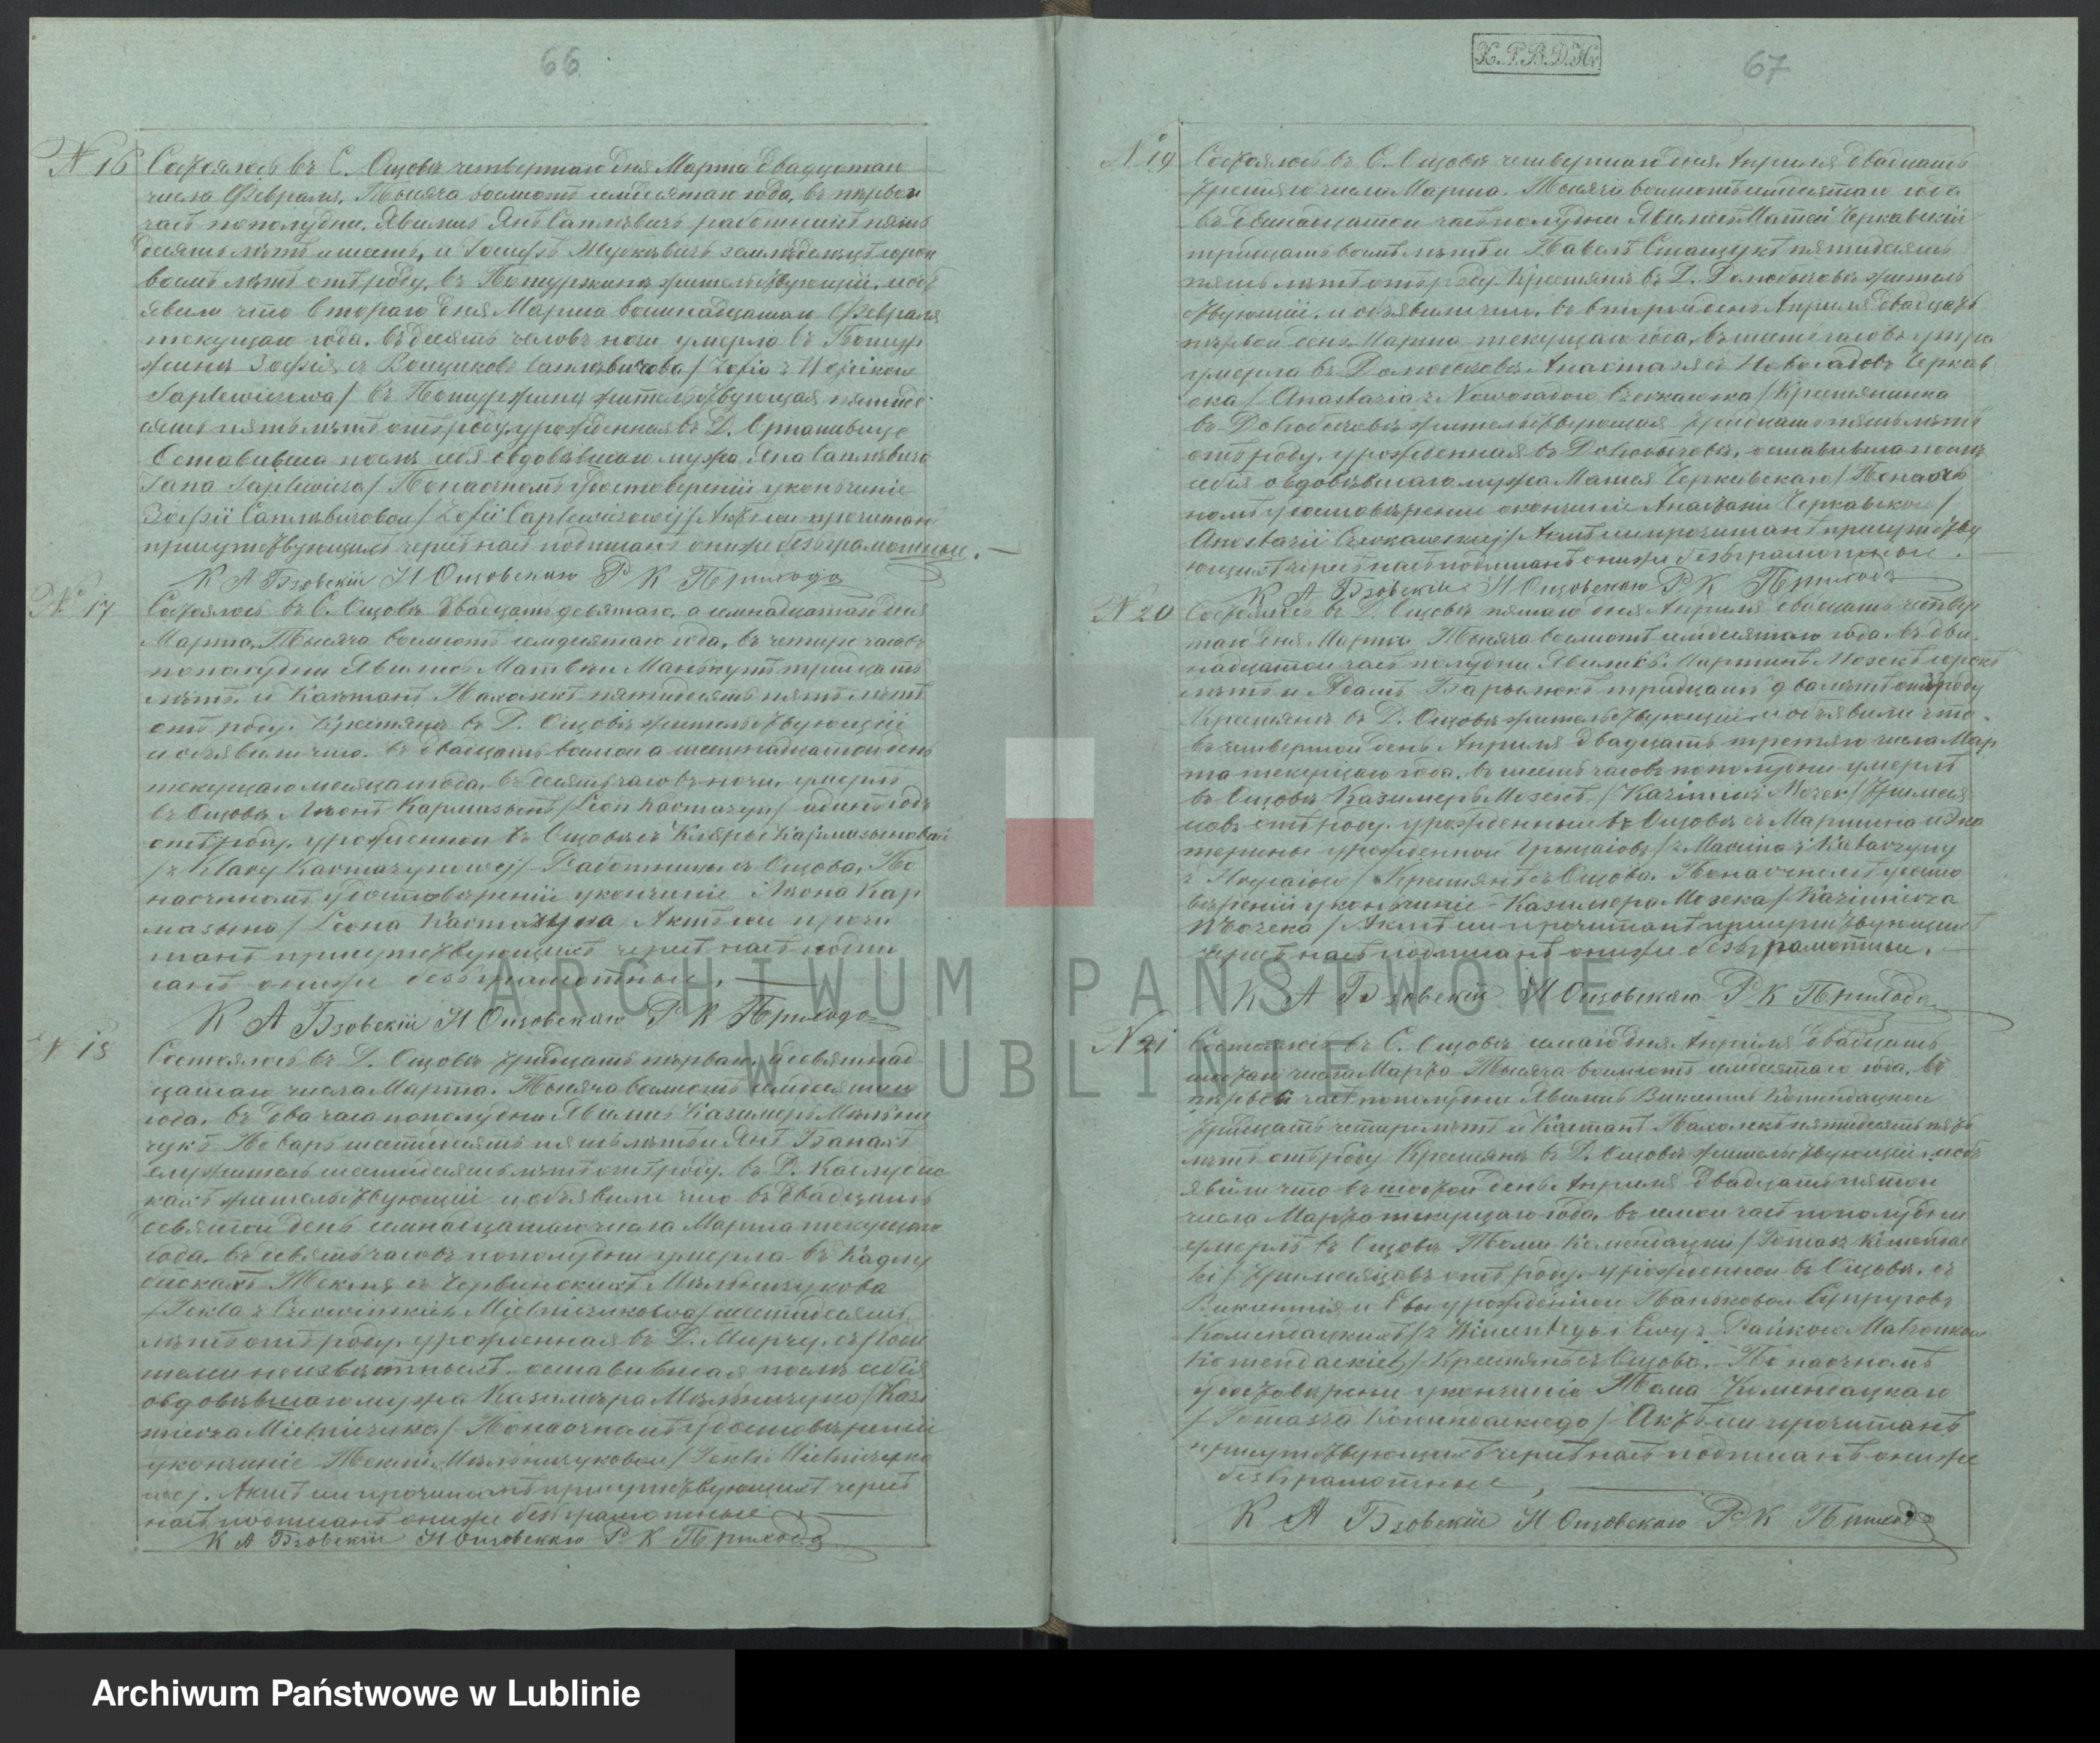 66
N 16 Состоялось въ С. Ощовѣ четвертаго дня Марта двадцатаго
числа Февраля, Тысяча восемсотъ семдесятаго года, въ первои
часъ пополудни. Явились Янъ Саплѣвичъ работникъ пять
десятъ лѣтъ и шесть, и Іосифъ земледѣлецъ сорокъ
восмъ лѣтъ отъ роду, въ Потуржинѣ жительствующіи, и объ
явили что втораго дня Марта восемнадцатаго Февраля
текущаго года, въ десять часовъ ночи умерла въ Потур
жинѣ Зофія съ Воициковъ Саплѣвичова / Zofia z Wojcikow
Saplewiczowa / въ Потуржинѣ жительствующая пятьде
сятъ пять лѣтъ отъ роду, урожденная въ Д.
Оставивша послѣ себя овдовѣвшаго мужа Яна Саплѣвича
Jana Saplewicza / По наочномъ удостовереніи укончинѣ
Зофіи Саплѣвичовои / Zofii Saplewiczowej / Актъ сеи прочитанъ
присутствующимъ черезъ насъ подписанъ они же безграмотные.
К А Бзовскіи Н Ощовскаго Р К Прихода
N 17 Состоялось въ С. Ощовѣ двадцать девятаго, а семнадцатаго дня
Марта, Тысяча восемсотъ семдесятаго года, въ четыре часовъ
пополудни Явились Матвѣи тридцать
лѣтъ, и Каетанъ Пахолекъ пятидесять пять лѣтъ
отъ роду, Крестянѣ въ Д. Ощовѣ жительствующіи
и объявили что, въ двадцать восмои а шестнадцатои день
текущаго месяца и года, въ десять часовъ ночи, умеръ
въ Ощовѣ Леонъ Кармазынъ / Leon Karmazyn / одинъ годъ
отъ роду, урожденнои въ Ощовѣ съ Кляры Кармазыновои
/ z Klary Karmazynowej / Работницы съ Ощова, По
наочномъ удостовѣреніи укончинѣ Леона Кар
мазына / Leona Karmazyna / Актъ сеи прочи
танъ присутствующимъ черезъ насъ подпи
санъ они же безграмотные,
К А Бзовскіи Н Ощовскаго Р К Прихода
N 18 Состоялось въ Д. Ощовѣ тридцать перваго, а девятнад
цатаго числа Марта, Тысяча восемсотъ семдесятаго
года, въ два часа пополудни Явились Казимеръ Мельни
чукъ Поваръ шестидесять пять лѣтъ и Янъ Банахъ
служитель шестидесять лѣтъ отъ роду, въ Д. Кадлубис
кахъ жительствующіи и объявили что въ двадцать
девятои день семнадцатаго числа Марта текущаго
года, въ девять часовъ пополудни умерла въ Кадлу
бискахъ Текля съ Червинскихъ Мельничукова
/ Tekla z Czerwinskich Mielniczukowa / шестидесять
лѣтъ отъ роду, урожденная въ Д. Мирчу, съ роди
тели неизвѣстныхъ, оставившая послѣ себя
овдовѣвшаго мужа Казимѣра Мельничука / Kazi
mierza Mielniczuka / По наочномъ удостовѣреніи
укончинѣ Текли Мельничуковои / Tekli Mielniczuko
wej. Актъ сеи прочитанъ присутствующимъ черезъ
насъ подписанъ они же безграмотные,
К А Бзовскіи Н Ощовскаго Р К Прихода
К.Р.В.Д.Н.
67
N 19 Состоялось въ С. Ощовѣ четвертаго дня Априля двадцать
третяго числа Марта, Тысяча восемсотъ семдесятаго года
въ двенадцатои часъ полудни Явились Матеи Черкавскіи
тридцать восмъ лѣтъ и Павелъ Стащукъ пятидесять
пять лѣтъ отъ роду, Крестянѣ въ Д. Долхобычовѣ житель
ствующіи, и объявили что, въ вторыи день Априля двадцать
первои день Марта текущаго года, въ шесть часовъ утра
умерла въ Долхобычовѣ Анастазія съ Новосадовъ Черкав
ска / Anastazia z Nowosadow Czerkawska / Крестянинка
въ Долхобычовѣ жительствующая тридцать пять лѣтъ
отъ роду, урожденная въ Долхобычовѣ, оставивша послѣ
себя овдовѣвшаго мужа Матея Черкавскаго / По наоч
номъ удостовѣреніи окончинѣ Анастазіи Черкавскои /
Anastazii Czerkawskiej / Актъ сеи прочитанъ присутству
ющимъ черезъ насъ подписанъ они же безграмотные.
К А Бзовскіи Н Ощовскаго Р К Прихода
N 20 Состоялось въ Д. Ощовѣ пятаго дня Априля двадцать четвер
таго дня Марта Тысяча восемсотъ семдесятаго года въ две
надцатои часъ полудни Явились Мартинъ Мозекъ сорокъ
лѣтъ и Адамъ тридцать два лѣтъ отъ роду
Крестянѣ въ Д. Ощовѣ жительствующіи и объявили что
въ четвертои день Априля двадцать третяго числа Мар
та текущаго года, въ шесть часовъ пополудни умеръ
въ Ощовѣ Казимеръ Мозекъ / Kazimierz Mozek / три меся
цовъ отъ роду, урожденныи въ Ощовѣ съ Мартина и Ека
терины урожденнои / z Marcina i Katarzyny
z / Крестянъ съ Ощова. По наочномъ удосто
вѣреніи укончинѣ Казимера Мозека / Kazimierza
Mozeka / Актъ сеи прочитанъ присутствующимъ
черезъ насъ подписанъ они же безграмотные.
К А Бзовскіи Н Ощовскаго Р К Прихода
N 21 Состоялось въ С. Ощовѣ семаго дня Априля двадцать
шестаго числа Марта Тысяча восемсотъ семдесятаго года, въ
первои часъ пополудни Явились Викентіи Комендацкои
тридцать четыре лѣтъ и Каетанъ Пахолекъ пятидесять пять
лѣтъ отъ роду Крестянѣ въ Д. Ощовѣ жительствующіи, и объ
явили что въ шестои день Априля двадцать пятои
числа Марта текущаго года, въ семои часъ пополудни
умеръ въ Ощовѣ Томаш Комендацки / Tomasz Komendac
ki / три месяцовъ отъ роду, урожденнои въ Ощовѣ, съ
Викентія и Евы урожденнои Паньковои Супруговъ
Комендацкихъ / z Wincentego i Ewy z Małzonkow
Komendackich / Крестянъ съ Ощова. По наочномъ
удостовѣреніи укончинѣ Тома Комендацкаго
/ Tomasza Komendackiego / Актъ сеи прочитанъ
присутствующимъ черезъ насъ подписанъ они же
безграмотные,
К А Бзовскіи Н Ощовскаго Р К Прихода
ARCHIWUM PAŃSTWOWE
W LUBLINIE
Archiwum Państwowe w Lublinie